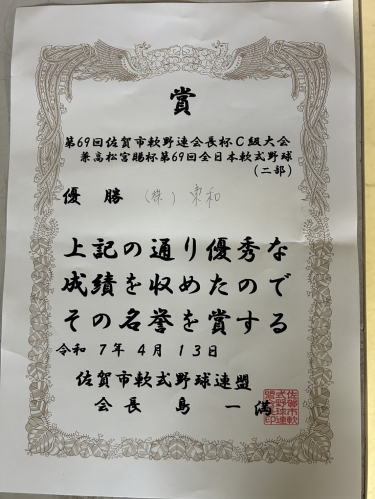 賞
第69回佐賀市軟野連会長杯C級大会
兼高松宮賜杯第69回全日本軟式野球
(二部)
優勝 (株) 東和
上記の通り優秀な
成績を収めたので
その名誉を賞する
令和7年4月13日
佐賀市軟式野球連盟
会長 島 一満
佐賀市軟
式野球連
盟会長印